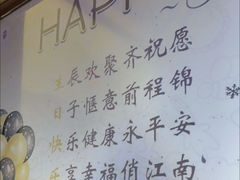 HAPP
生辰欢聚齐祝愿
日子惬意前程锦
快乐健康永平安
乐享幸福俏江南